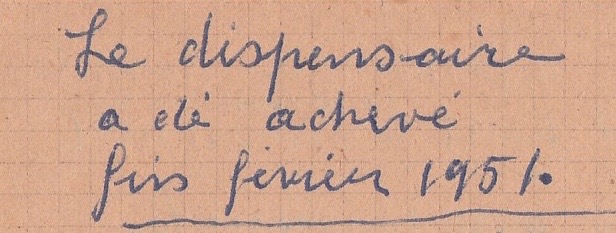 Le dispensaire
a été achevé
fin février 1951.